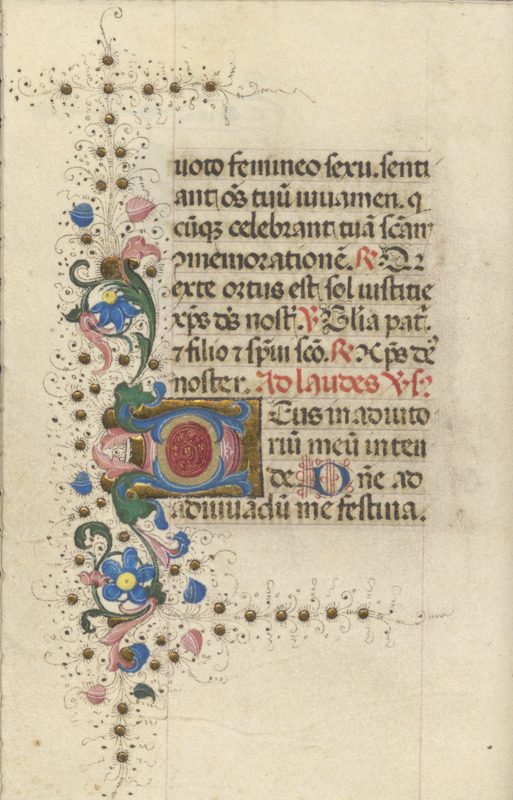 uoto femineo sexu. senti
ant oēs tuū iuuamen. q̄
cūq; celebrant tuā scām
ↄmemorationē. R̄. Qr
ex te ortus est sol iustitie
xp̄s dēs nosť. V̄ Glīa patī.
⁊ filio ⁊ sp̄ui scō. R̄ Xp̄s dē
noster. Ad laudes V̄s.
Deus in adiuto
riū meū inten
de. Dn̄e ad
adiuuādū me festina.